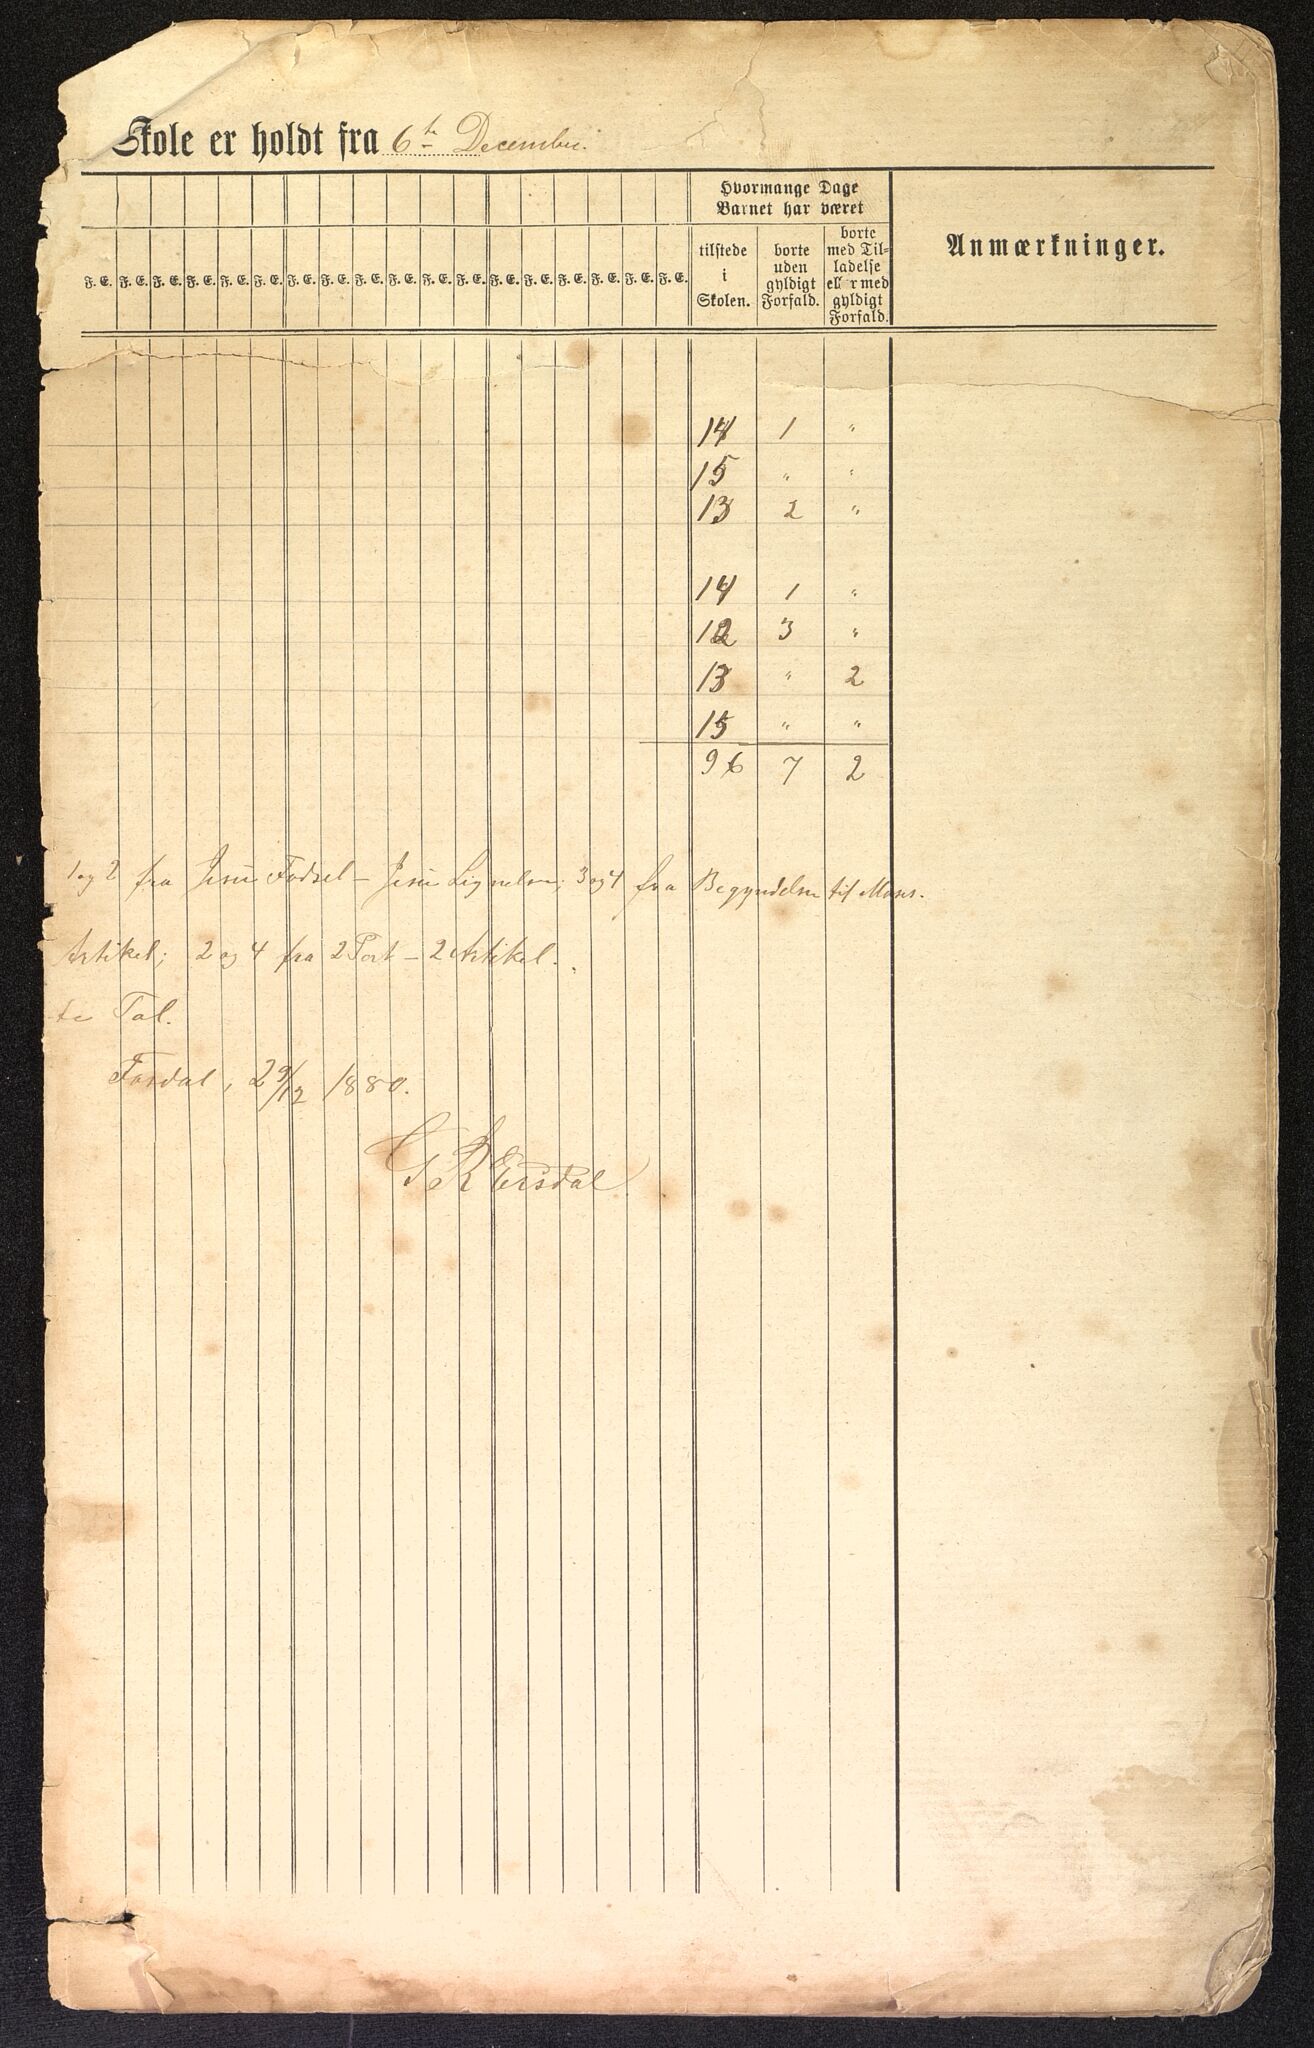 Skole er holdt fra 6te December.
Hvormange Dage
Barnet har været
Anmærkninger.
tilstede i Skolen.
borte uden gyldigt Forfald.
borte med Tilladelse eller med gyldigt Forfald.
F. E. F. E. F. E. F. E. F. E. F. E. F. E. F. E. F. E. F. E. F. E. F. E. F. E. F. E. F. E. F. E. F. E. F. E.
14 1 "
15 " "
13 2 "
14 1 "
12 3 "
13 " 2
15 " "
96 7 2
1 og 2 fra Jesu Fødsel – Jesu Lignelser; 3 og 4 fra Begyndelsen til Moses.
Artikel; 2 og 4 fra 2 Part – 2 Artikel.
te Tal.
29/12 1880.